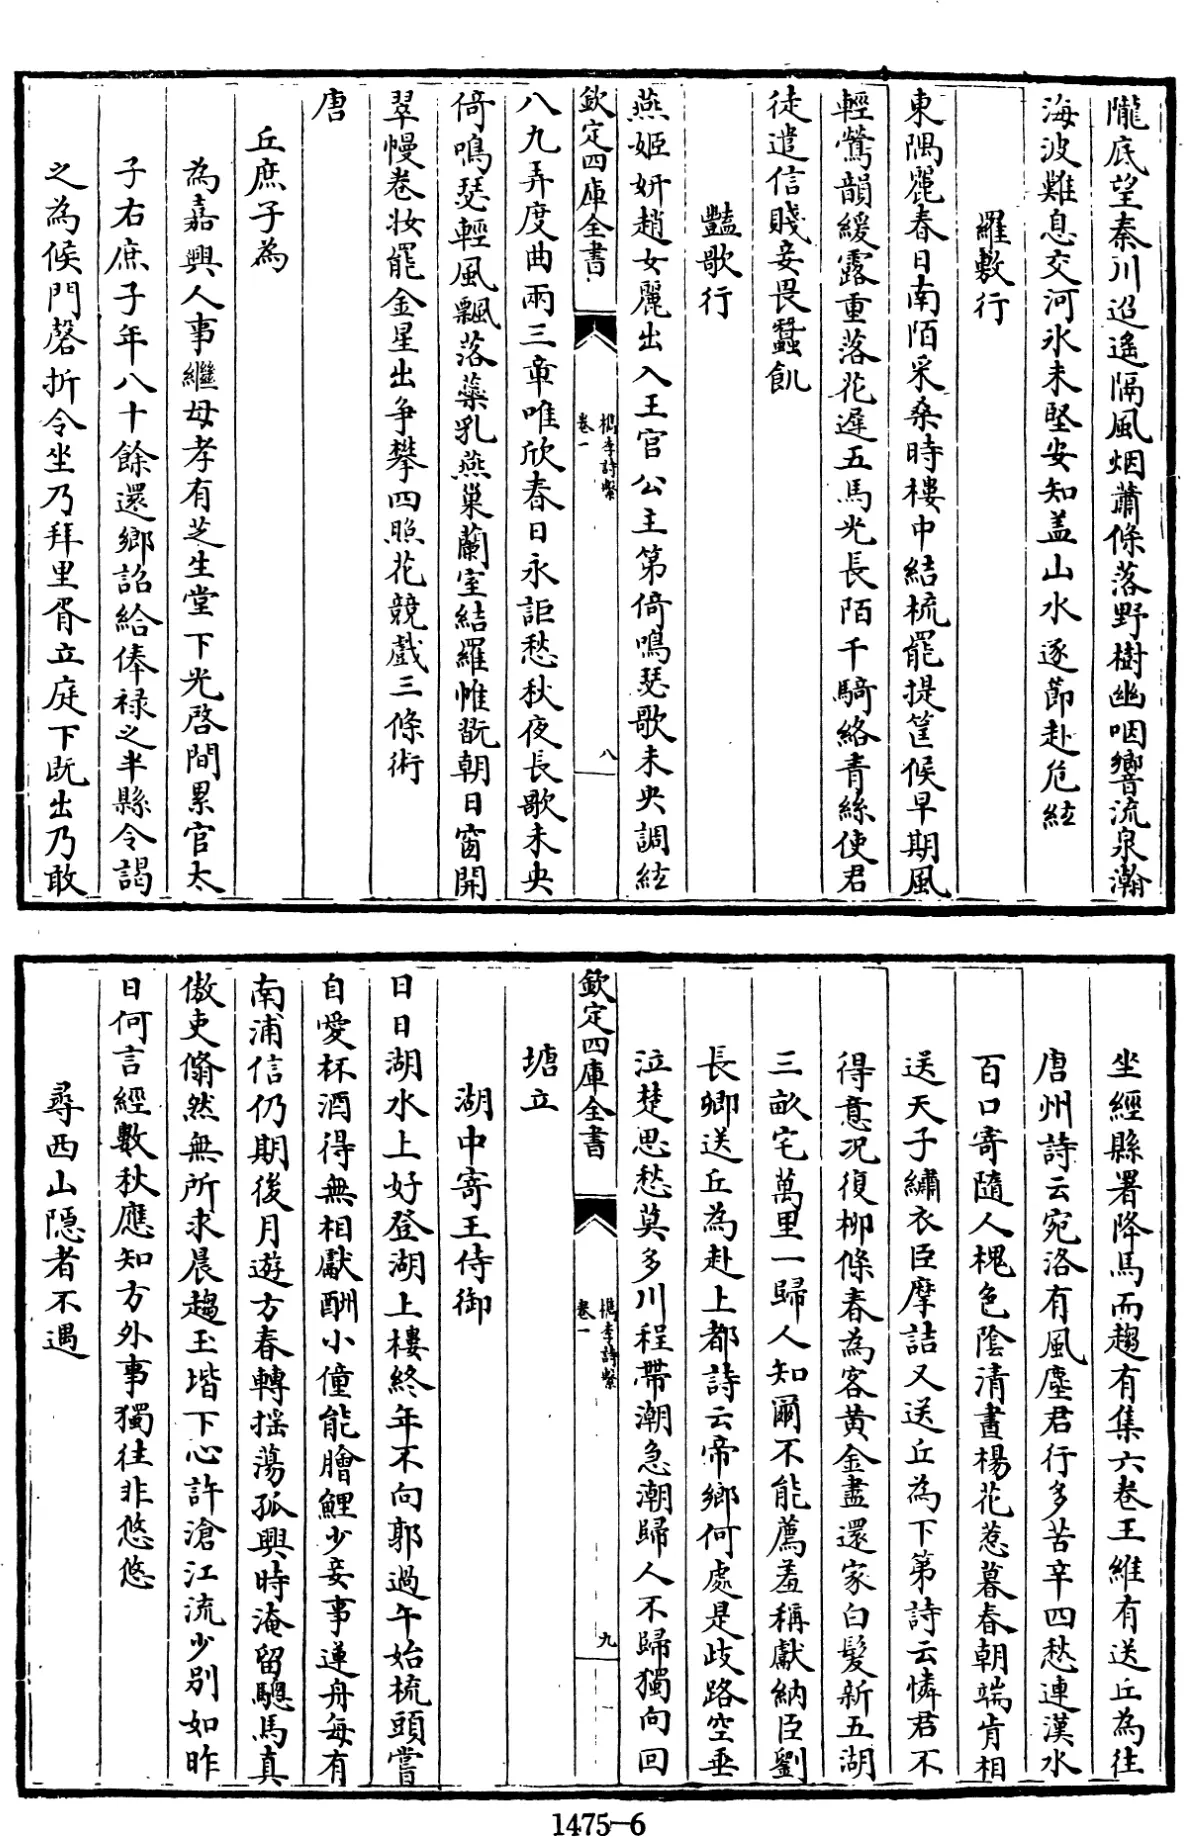 隴底望秦川迢遙隔風烟蕭條落野樹幽咽響流泉瀚
海波難息交河氷未堅安知盖山水逐節赴危絃
羅敷行
東隅麗春日南陌采桑時樓中結梳罷提筐候早期風
輕鶯韻緩露重落花遲五馬光長陌千騎絡青絲使君
徒遣信賤妾畏蠶飢
豔歌行
燕姬妍趙女麗出入王宮公主第倚鳴瑟歌未央調絃
欽定四庫全書
檇李詩繫
卷一
八
八九弄度曲兩三章唯欣春日永詎愁秋夜長歌未央
倚鳴瑟輕風飄落蘂乳燕巢蘭室結羅帷翫朝日窗開
翠幔卷妝罷金星出争攀四照花競戲三條術
唐
丘庶子為
為嘉興人事繼母孝有芝生堂下光啓間累官太
子右庶子年八十餘還鄉詔給俸禄之半縣令謁
之為候門磬折令坐乃拜里胥立庭下既出乃敢
坐經縣署降馬而趨有集六卷王維有送丘為往
唐州詩云宛洛有風塵君行多苦辛四愁連漢水
百口寄隨人槐色陰清晝楊花惹暮春朝端肯相
送天子繡衣臣摩詰又送丘為下第詩云憐君不
得意况復栁條春為客黄金盡還家白髮新五湖
三畝宅萬里一歸人知爾不能薦羞稱獻納臣劉
長卿送丘為赴上都詩云帝鄉何處是歧路空垂
泣楚思愁莫多川程帶潮急潮歸人不歸獨向回
欽定四庫全書
檇李詩繫
卷一
九
塘立
湖中寄王侍御
日日湖水上好登湖上樓終年不向郭過午始梳頭嘗
自愛杯酒得無相獻酬小僮能膾鯉少妾事蓮舟每有
南浦信仍期後月遊方春轉揺蕩孤興時淹留驄馬真
傲吏翛然無所求晨趨玉堦下心許滄江流少别如昨
日何言經數秋應知方外事獨往非悠悠
尋西山隱者不遇
1475—6